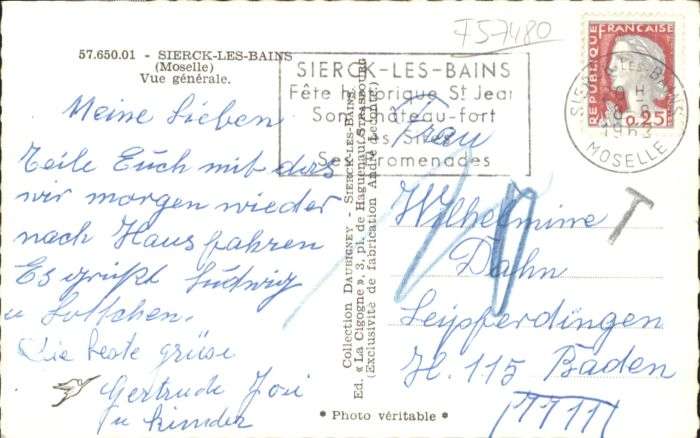 F57480
57.650.01 - SIERCK-LES-BAINS
(Moselle)
Vue générale.
SIERCK-LES-BAINS
Fête historique St Jean
Son Château-fort
Ses Sites
Ses Promenades
REPUBLIQUE FRANÇAISE
0,25
SIERCK-LES-BAINS
1963
MOSELLE
T
Meine Lieben
Teile Euch mit dass
wir morgen wieder
nach Haus fahren
Es grüßt Ludwig
u Lottchen.
Die beste grüse
Gertrude Josi
u kinder
Collection DAUBIGNEY - SIERCK-LES-BAINS.
Ed. « La Cigogne », 3, pl. de Haguenau, STRASBOURG
(Exclusivité de fabrication André Leconte.)
Frau
Wilhelmine
Dahn
Leipferdingen
H. 115 Baden
• Photo véritable •